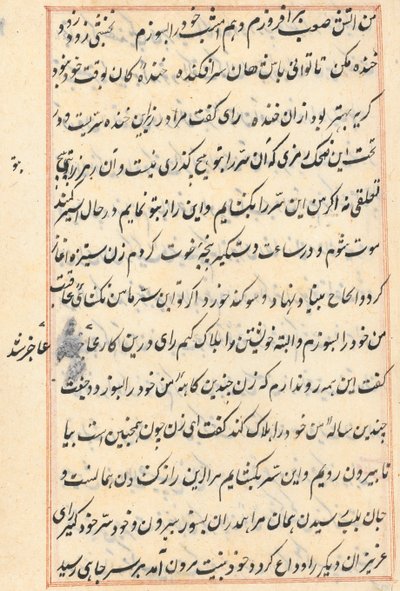 من آتش صعب برافروزم و هم امشب خود را بسوزم نخشبی زود زود
خنده مکن تا توانی باش هان سرافکنده خنده کان بوقت خود نبود
گریه بهتر بود از آن خنده رای گفت مرا در زیر این خنده سریست و در
تحت این ضحک رمزی که آن سر را بتو هیچ گذری نیست و آن رمز را بتو هیچ
بتو
تعلقی نه اگر من این سر را بکشایم و این راز بتو نمایم در حال اسیر کمند
موت شوم و در ساعت دستگیر پنجهٔ فوت گردم زن ستیزه آغاز
کرد و الحاح بنیاد نهاد و سوگند خورد اگر تو این سر با من نکشائی عاقبت
من خود را بسوزم و البته خویشتن را هلاک کنم رای درین کار
عاجز شد
گفت این هم روا ندارم که زن چندین گاهه من خود را بسوزد و جفت
چندین ساله من خود را هلاک کند گفت ای زن چون همچنین است بیا
تا بیرون رویم و این سر بکشایم مرا این راز کشادن همانست و
جان بلب رسیدن همان مرا همدران بسوز بیرون و خود سر خود گیر رای
عزیزان دیگر را وداع کرد و خود بنیت مردن آمد بر سر چاهی رسید